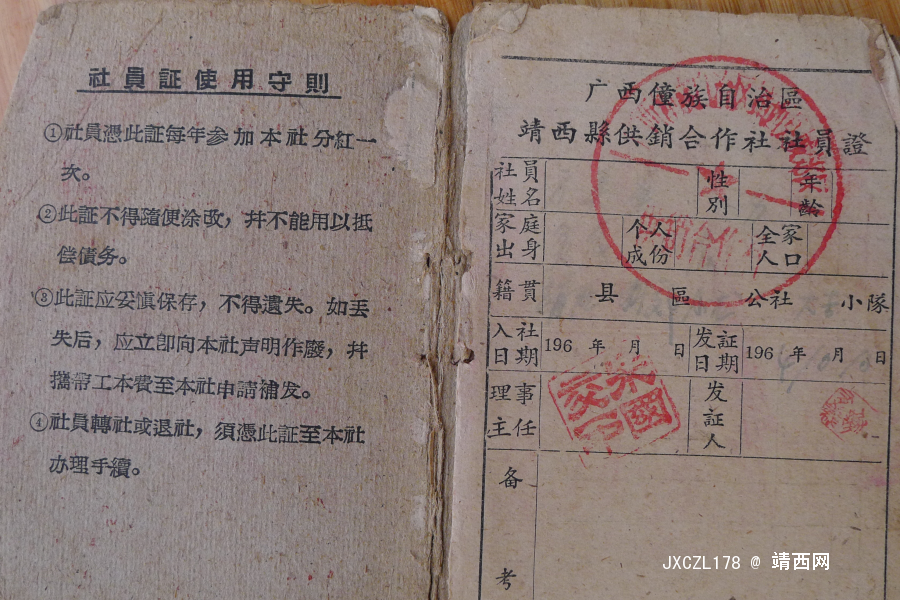 社員証使用守則
①社員憑此証每年参加本社分紅一
次。
②此証不得隨便涂改，并不能用以抵
偿債务。
③此証应妥慎保存，不得遺失。如丢
失后，应立卽向本社声明作廢，并
攜帶工本費至本社申請補发。
④社員轉社或退社，須憑此証至本社
办理手續。
广西僮族自治區
靖西縣供銷合作社社員證
社員姓名 性別 年齡
家庭出身 个人成份 全家人口
籍貫 县 區 公社 小隊
入社日期 196 年 月 日 发証日期 196 年 月 日
理事主任 发証人
备考
JXCZL178 @ 靖西网